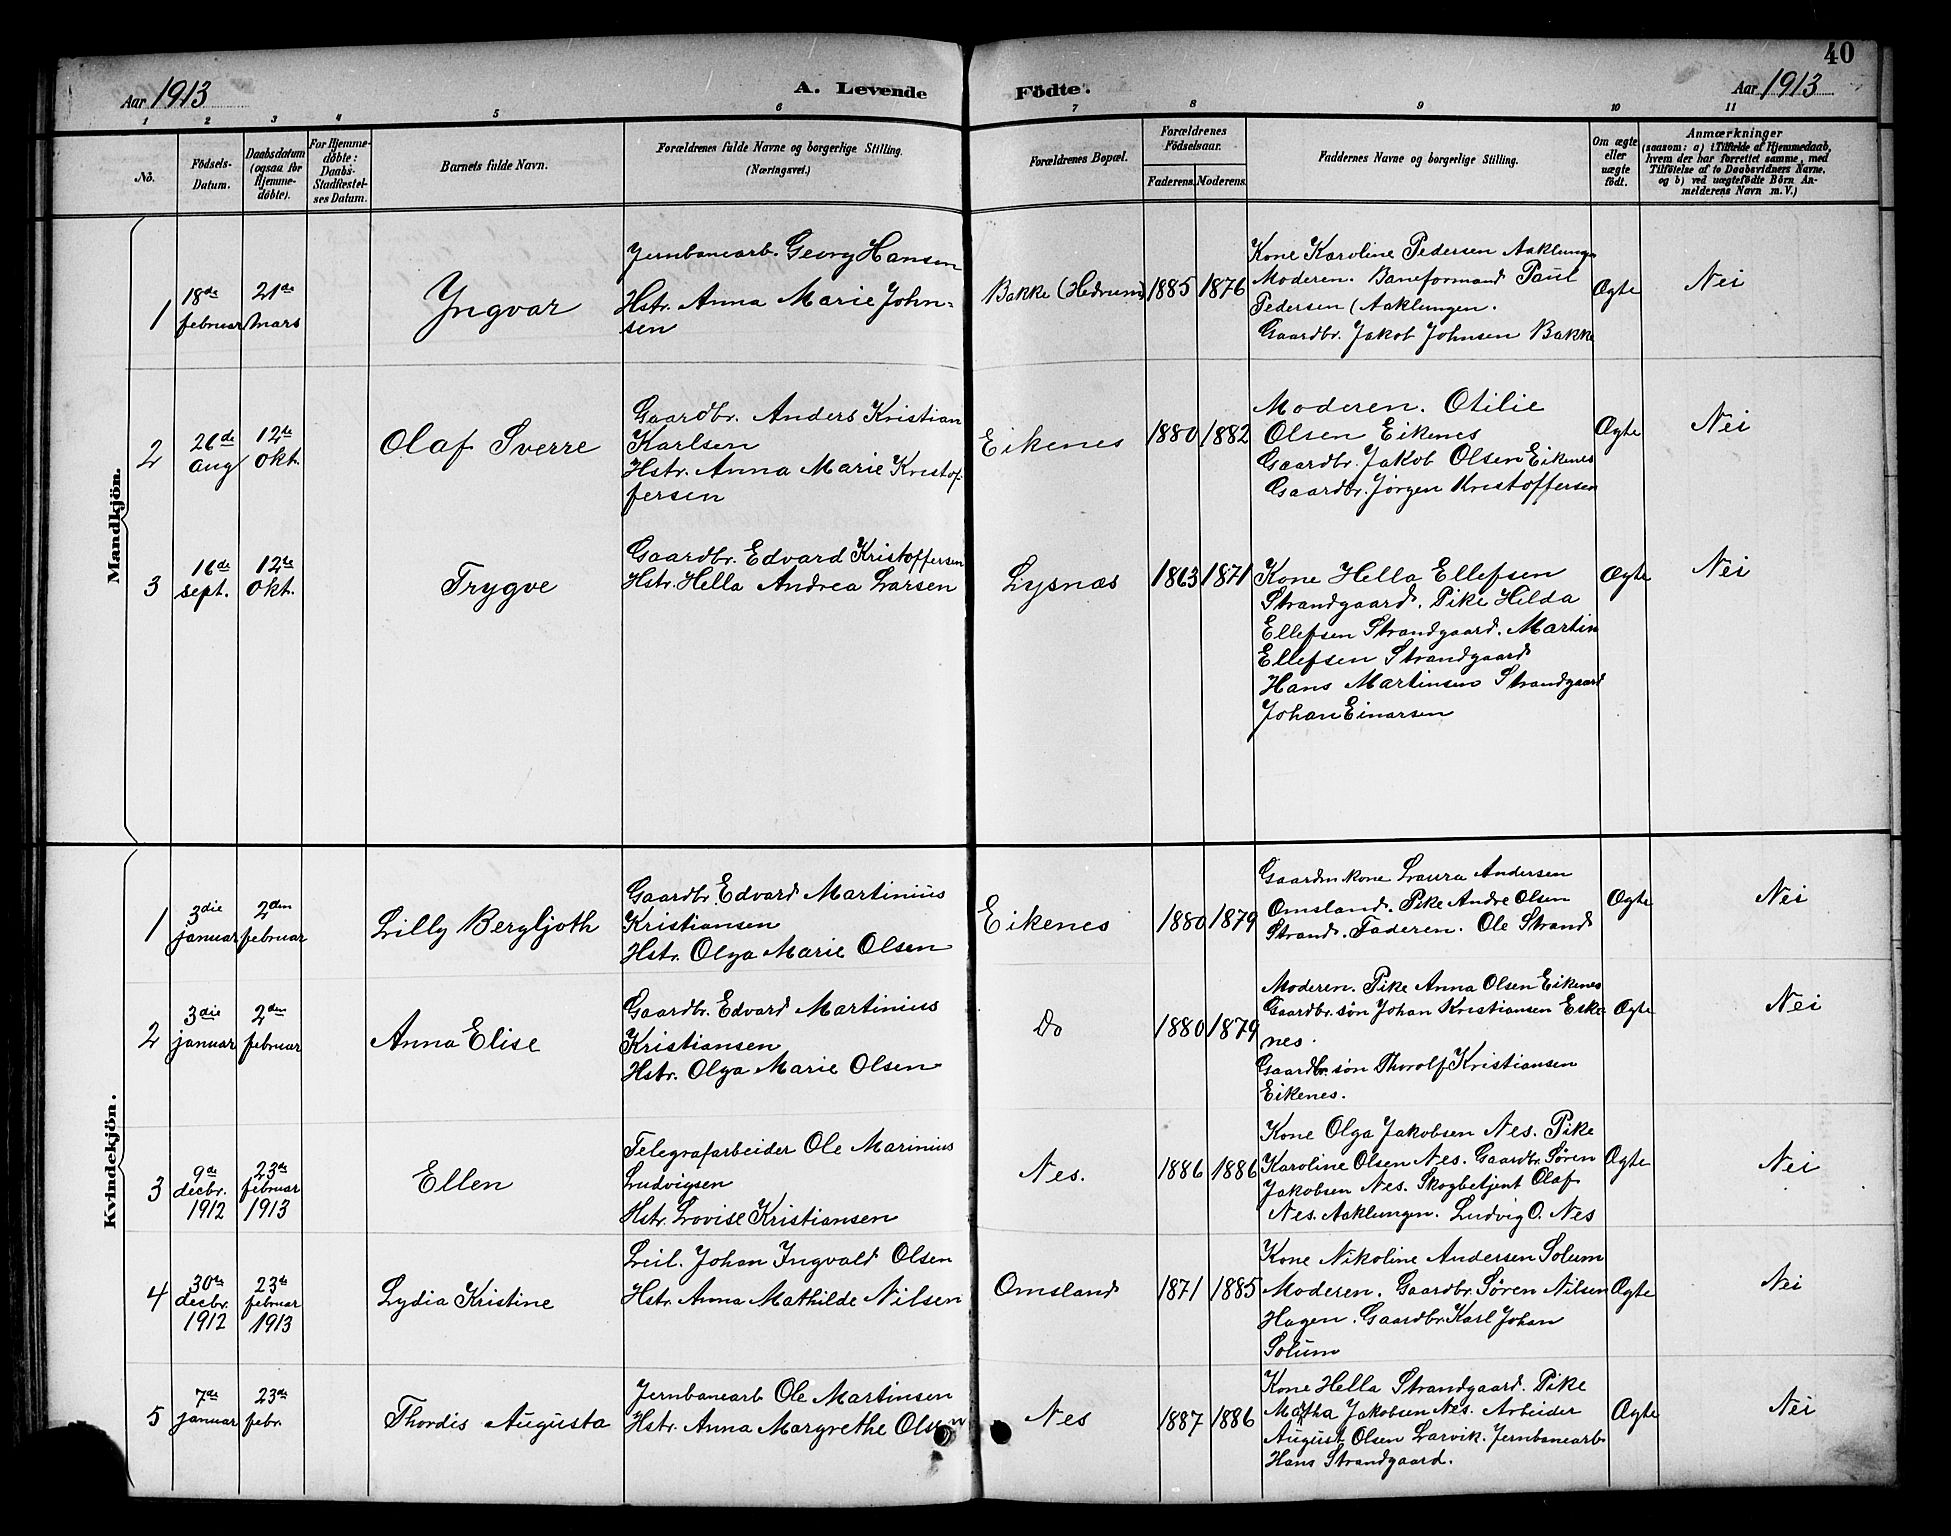 40
Aar 1913
A. Levende Födte.
Aar 1913
1 2 3 4 5 6 7 8 9 10 11
No.
Födsels-Datum.
Daabsdatum (ogsaa for Hjemme-döbte).
For Hjemme-döbte: Daabs-Stadfæstel-ses Datum.
Barnets fulde Navn.
Forældrenes fulde Navne og borgerlige Stilling. (Næringsvei.)
Forældrenes Bopæl.
Forældrenes Födselsaar.
Faderens. Moderens.
Faddernes Navne og borgerlige Stilling.
Om ægte eller uægte födt.
Anmærkninger
(saasom: a) i Tilfælde af Hjemmedaab,
hvem der har forrettet samme, med
Tilföielse af to Daabsvidners Navne,
og b) ved uægtefödte Börn An-
melderens Navn m. V.)
Mandkjön.
1
18de februar
21de mars
Yngvar
Jernbanearb. Georg Hansen
Hstr. Anna Marie John-
sen
Bakke (Hedrum)
1885 1876
Kone Karoline Pedersen Aaklungen
Moderen. Baneformand Paul
Pedersen (Aaklungen.
Gaardbr. Jakob Johnsen Bakke
Ægte
Nei
2
26de aug
12te okt.
Olaf Sverre
Gaardbr. Anders Kristian
Karlsen
Hstr. Anna Marie Kristof-
fersen
Eikenes
1880 1882
Moderen. Otilie
Olsen Eikenes
Gaardbr. Jakob Olsen Eikenes
Gaardbr. Jørgen Kristoffersen
Ægte
Nei
3
16de sept.
12te okt.
Trygve
Gaardbr. Edvard Kristoffersen
Hstr. Hella Andrea Larsen
Lysnæs
1863 1871
Kone Hella Ellefsen
Strandgaard. Pike Hilda
Ellefsen Strandgaard. Martin
Ellefsen Strandgaard
Hans Martinsen Strandgaard
Johan Einarsen
Ægte
Nei
Kvindekjön.
1
3die januar
2den februar
Lilly Bergljoth
Gaardbr. Edvard Martinius
Kristiansen
Hstr. Olga Marie Olsen
Eikenes
1880 1879
Gaardm. kone Laura Andersen
Omsland. Pike Andre Olsen
Strand. Faderen. Ole Strand
Ægte
Nei
2
3die januar
2den februar
Anna Elise
Gaardbr. Edvard Martinius
Kristiansen
Hstr. Olga Marie Olsen
Do
1880 1879
Moderen. Pike Anna Olsen Eikenes
Gaardbr. søn Johan Kristiansen Eike-
nes.
Gaardbr. søn Thorolf Kristiansen
Eikenes.
Ægte
Nei
3
9de decbr. 1912
23de februar 1913
Ellen
Telegrafarbeider Ole Marinius
Ludvigsen
Hstr. Lovise Kristiansen
Nes.
1886 1886
Kone Olga Jakobsen Nes. Pike
Karoline Olsen Nes. Gaardbr. Søren
Jakobsen Nes. Skogbetjent Olaf
Nes. Aaklungen. Ludvig O. Nes
Ægte
Nei
4
30te decbr. 1912
23de februar 1913
Lydia Kristine
Leil. Johan Ingvald Olsen
Hstr. Anna Mathilde Nilsen
Omsland
1871 1885
Kone Nikoline Andersen Solum
Moderen. Gaardbr. Søren Nilsen
Hagen. Gaardbr. Karl Johan
Solum
Ægte
Nei
5
7de januar
23de febr.
Thordis Augusta
Jernbanearb Ole Martinsen
Hstr. Anna Margrethe Olsen
Nes
1887 1886
Kone Hella Strandgaard. Pike
Martha Jakobsen Nes. Arbeider
August Olsen Larvik. Jernbanearb.
Hans Strandgaard.
Ægte
Nei